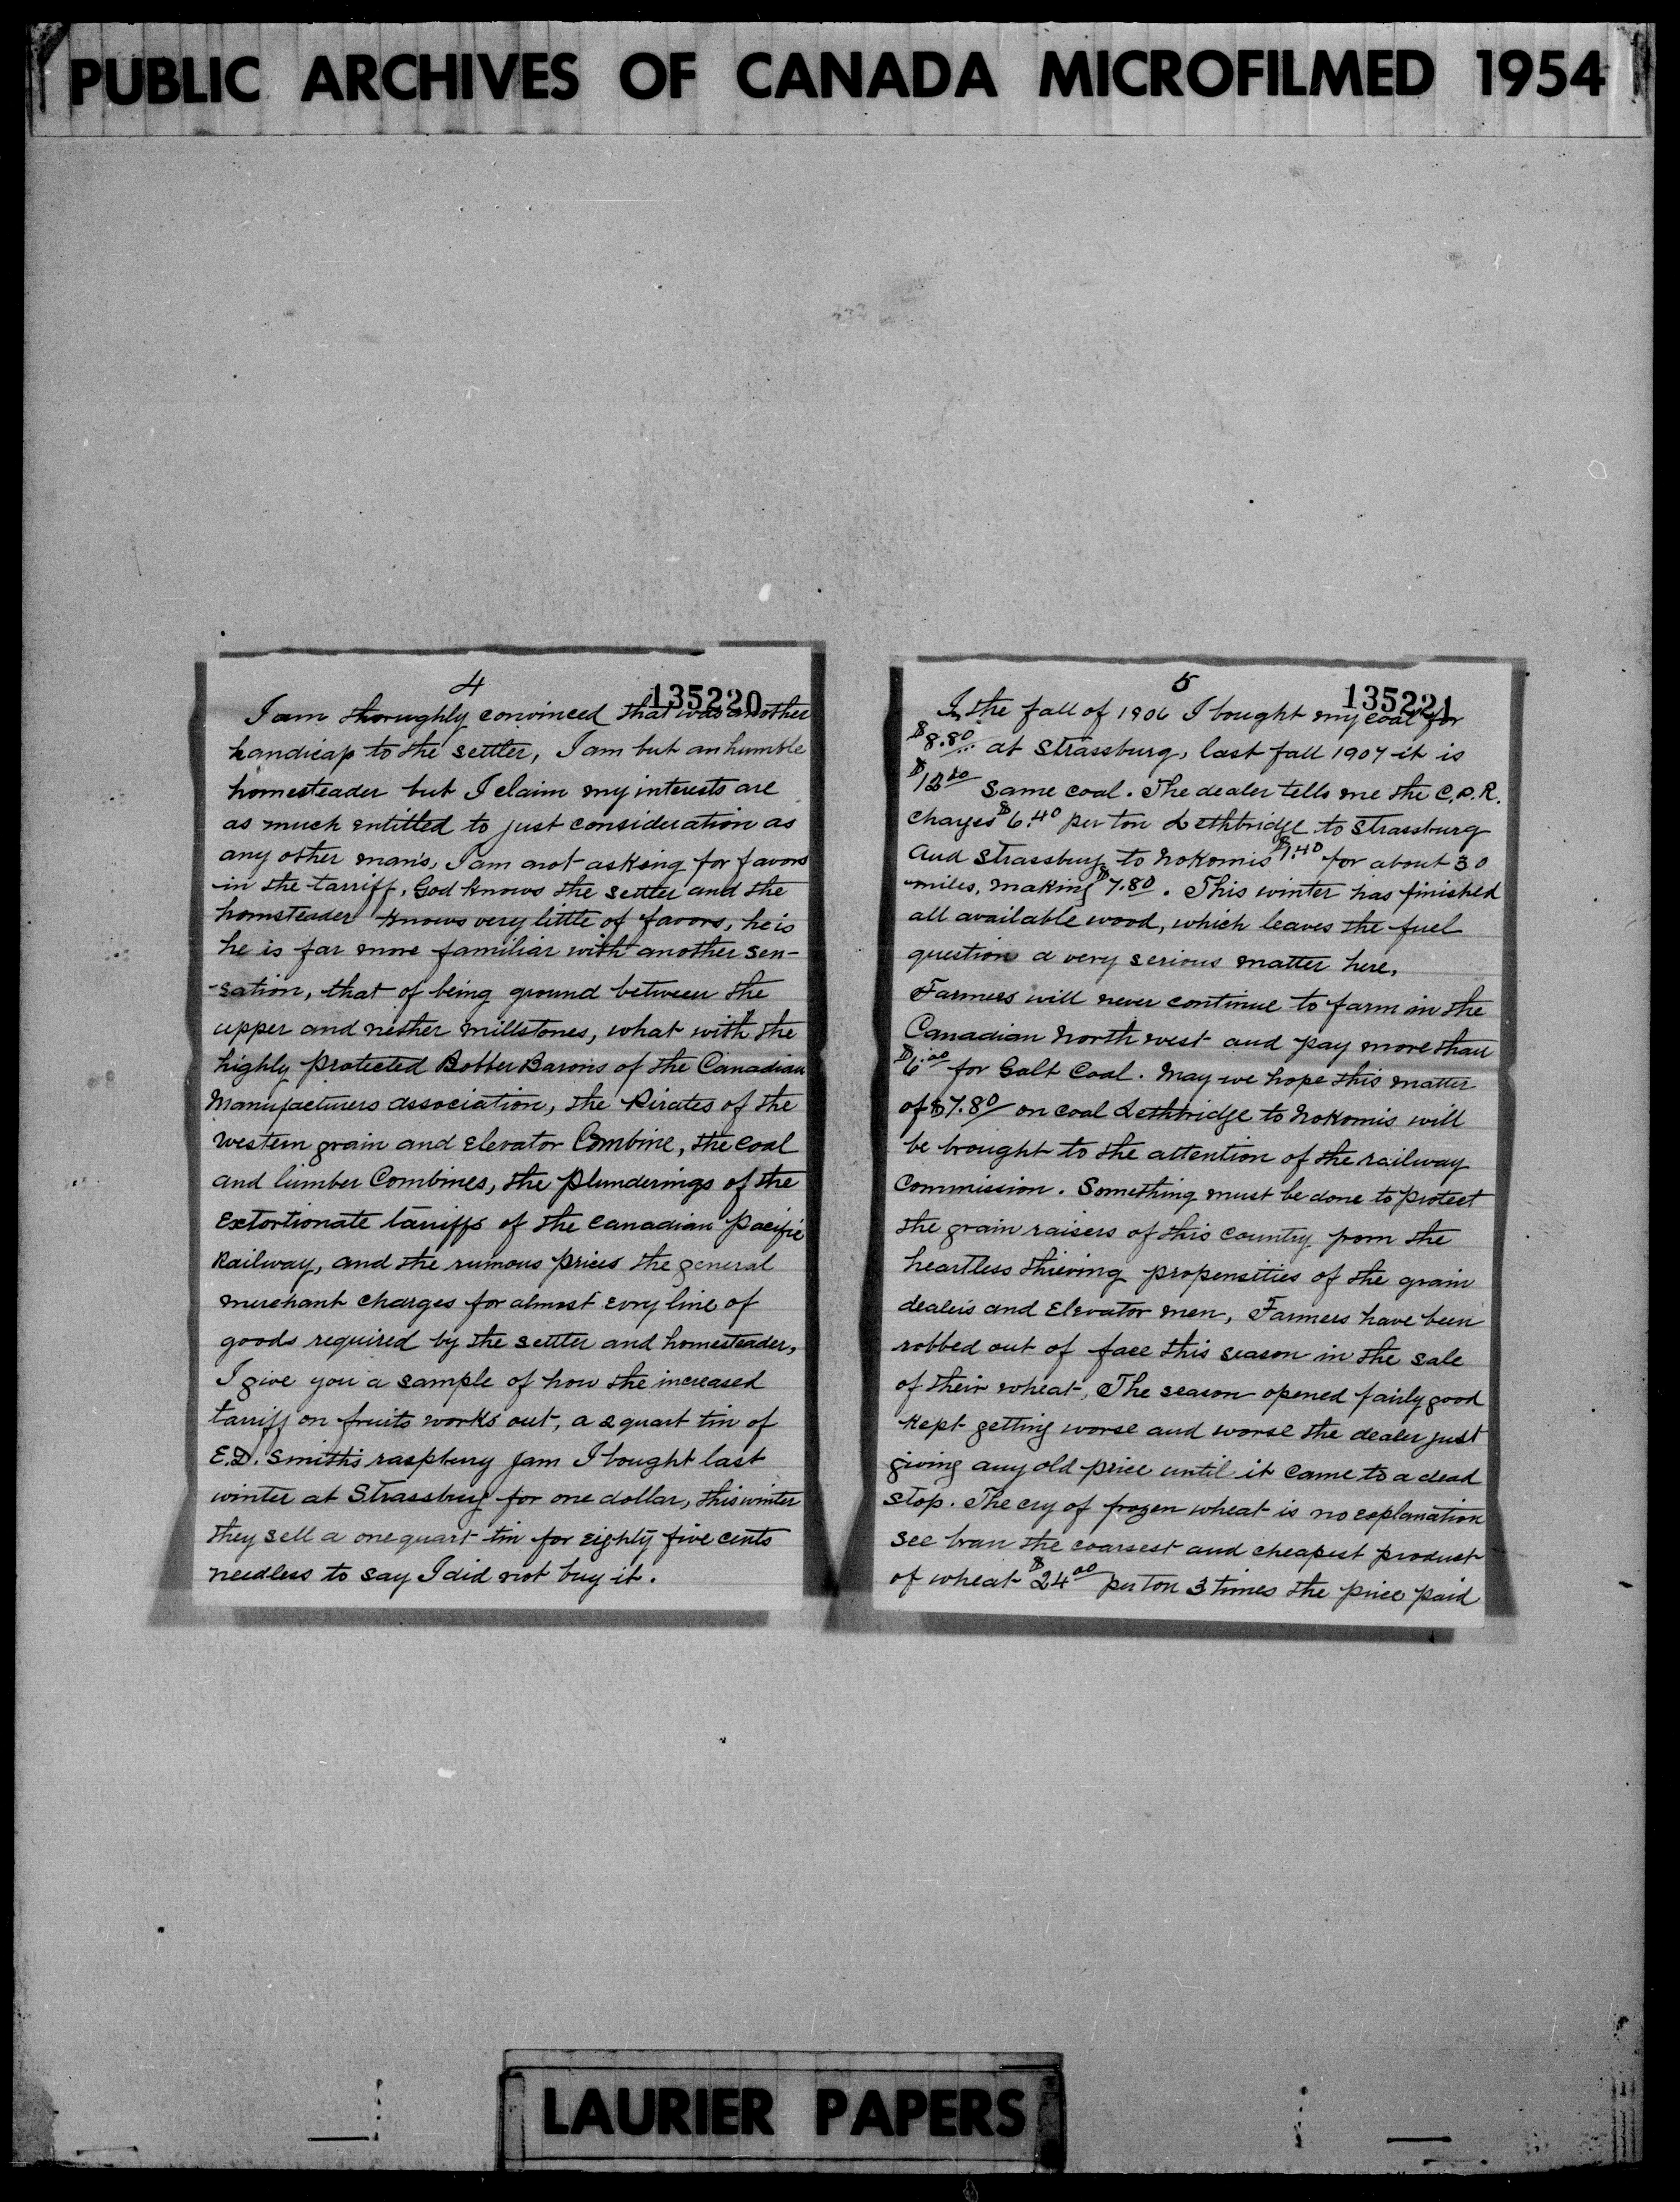 PUBLIC ARCHIVES OF CANADA MICROFILMED 1954
4
135220
I am thoroughly convinced that was another
handicap to the settler, I am but an humble
homesteader but I claim my interests are
as much entitled to just consideration as
any other man's, I am not asking for favors
in the tarriff, God knows the settler and the
homsteader knows very little of favors, he is
he is far more familiar with another sen-
-sation, that of being ground between the
upper and nether millstones, what with the
highly protected Robber Barons of the Canadian
Manufacturers association, the Pirates of the
western grain and elevator Combine, the coal
and lumber Combines, the plunderings of the
extortionate tarriffs of the Canadian Pacific
Railway, and the ruinous prices the general
merchant charges for almost evry line of
goods required by the settler and homesteader,
I give you a sample of how the increased
tarriff on fruits works out, a 2 quart tin of
E.D. Smith's raspberry jam I bought last
winter at Strassburg for one dollar, this winter
they sell a one quart tin for eighty five cents
needless to say I did not buy it.
5
135221
In the fall of 1906 I bought my coal for
$8.80 at Strassburg, last fall 1907 it is
same coal. The dealer tells me the C.P.R.
charges $6.40 per ton Lethbridge to Strassburg
and Strassburg to Nokomis $1.40 for about 30
miles, making $7.80. This winter has finished
all available wood, which leaves the fuel
question a very serious matter here.
Farmers will never continue to farm in the
Canadian North west and pay more than
$6.00 for Galt Coal. May we hope this matter
of $7.80 on coal Lethbridge to Nokomis will
be brought to the attention of the railway
Commission. Something must be done to protect
the grain raisers of this country from the
heartless thieving propensities of the grain
dealers and Elevator men, Farmers have been
robbed out of face this season in the sale
of their wheat, The season opened fairly good
kept getting worse and worse the dealer just
giving any old price until it came to a dead
stop. The cry of frozen wheat is no explanation
see bran the coarsest and cheapest product
of wheat $24.00 per ton 3 times the price paid
LAURIER PAPERS